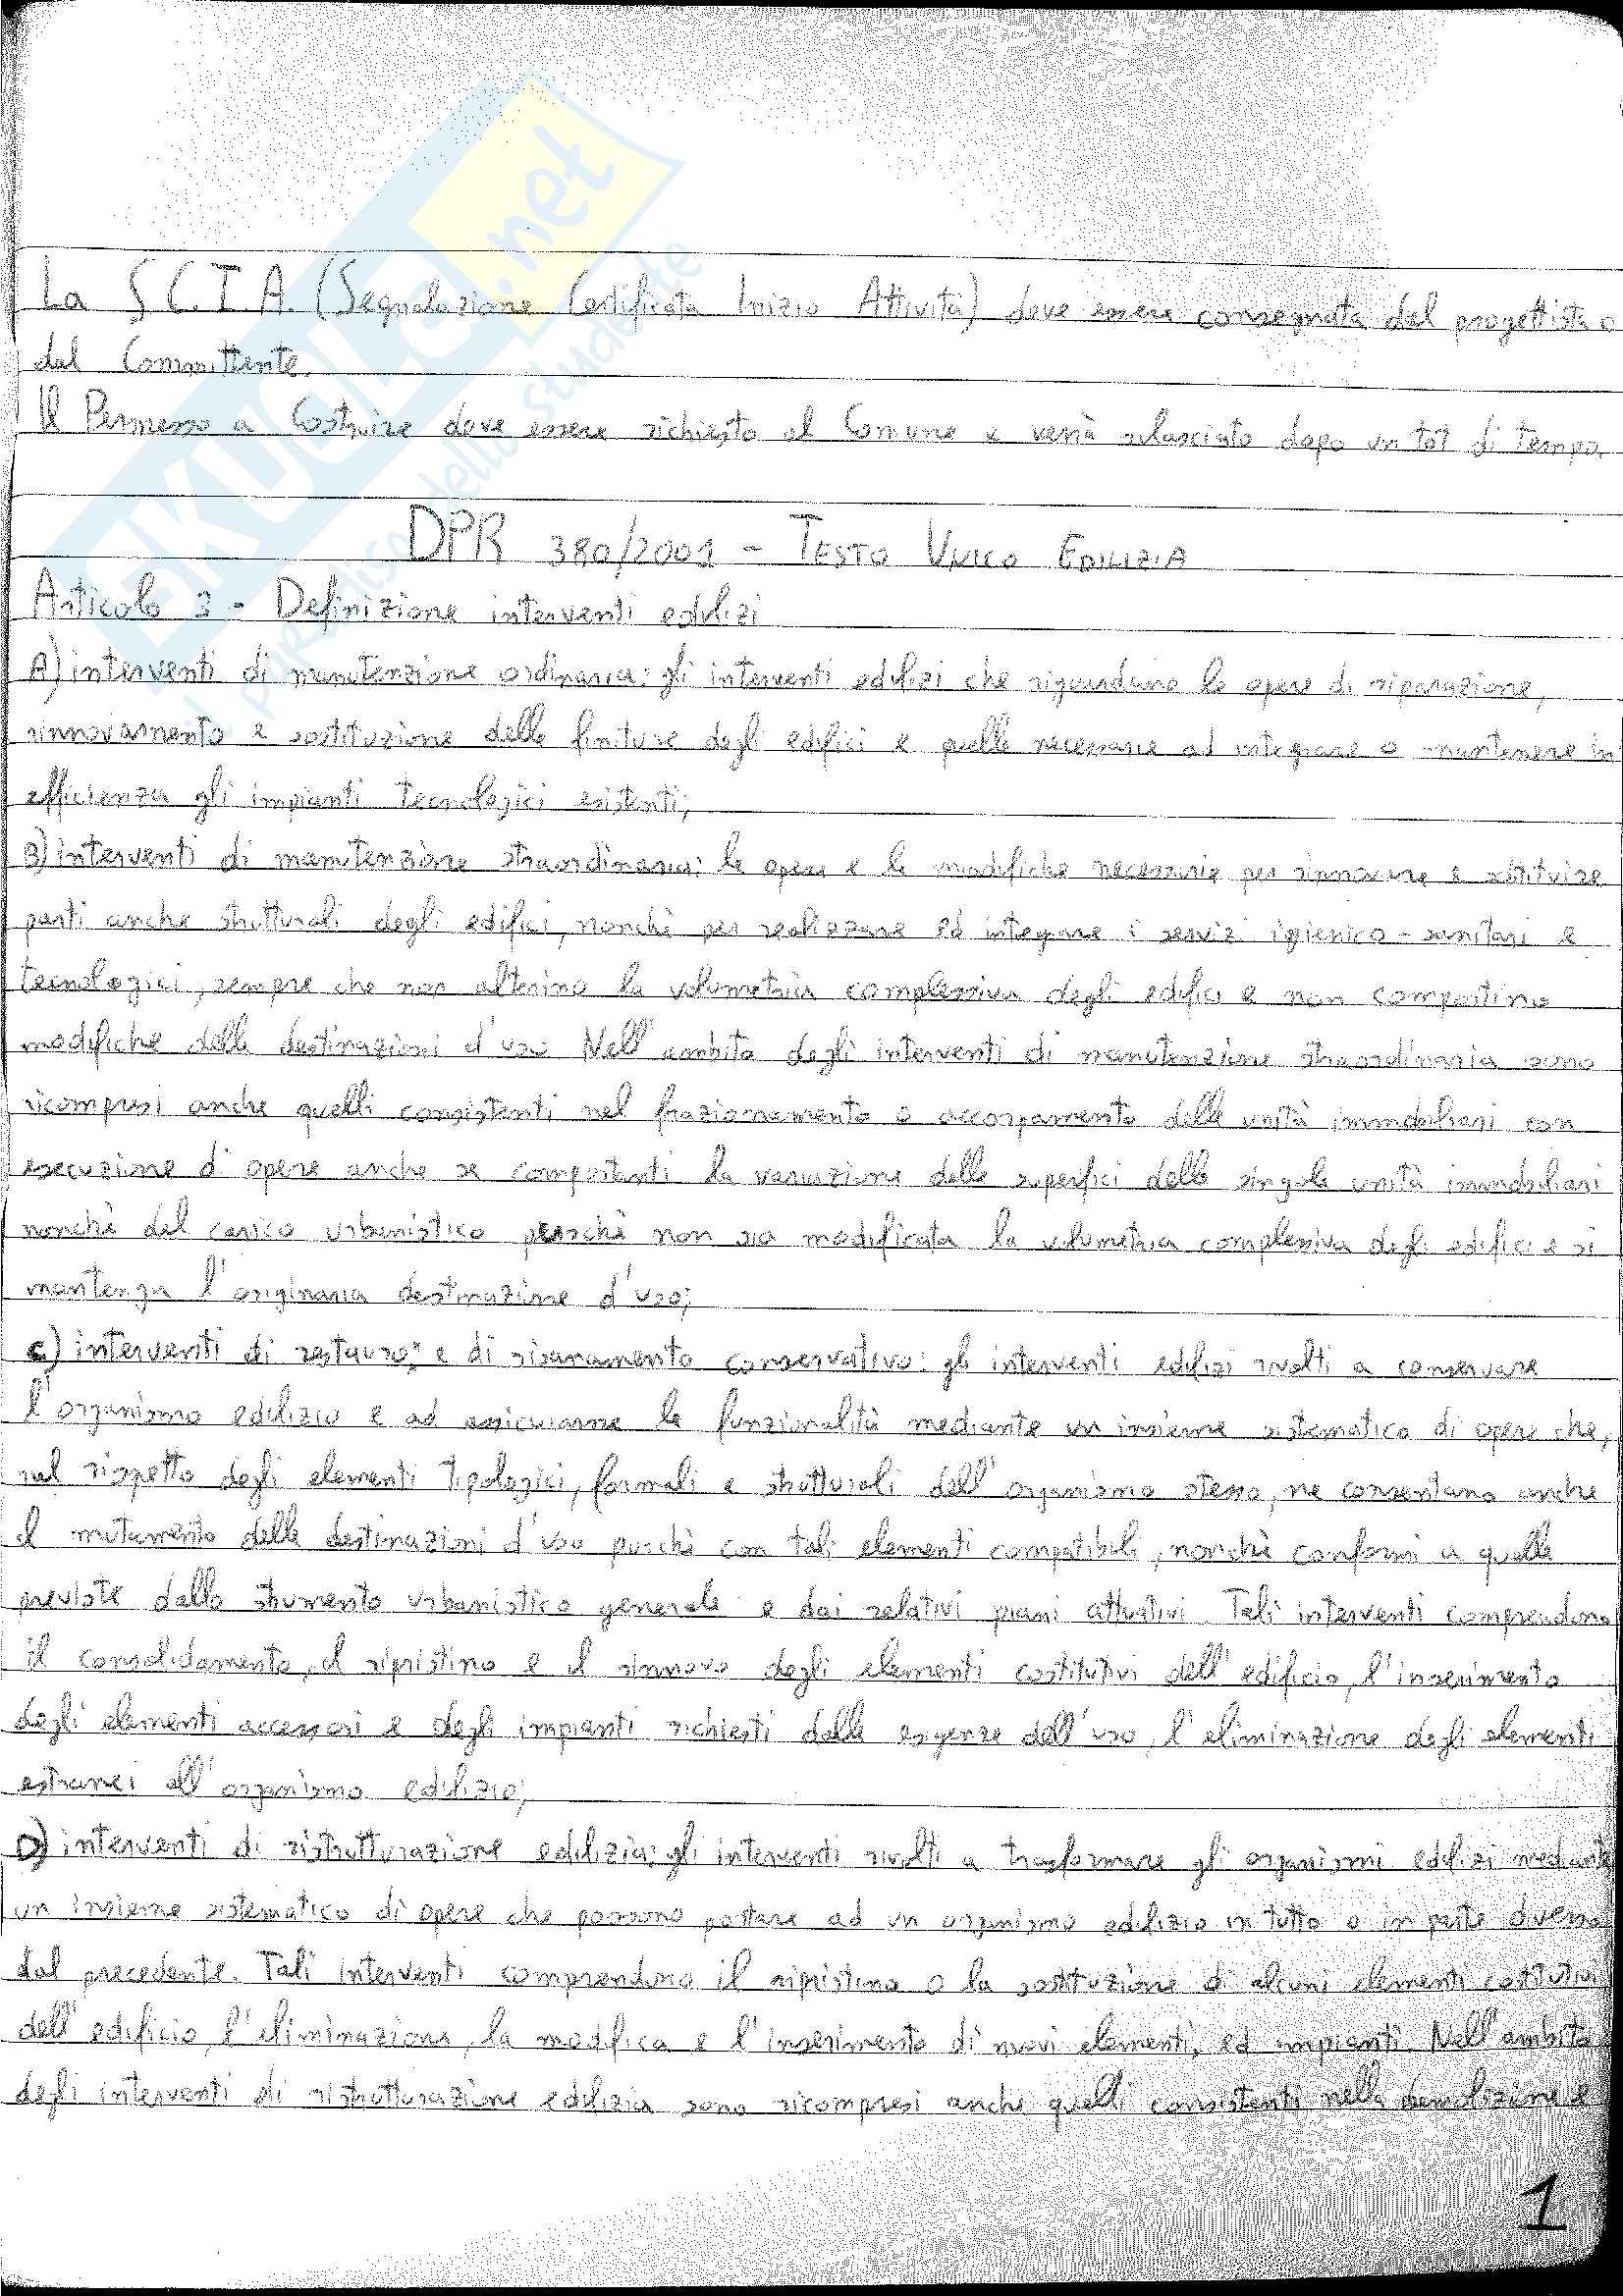 SKUOLA.net
il paradiso dello studente
La S.C.I.A. (Segnalazione Certificata Inizio Attività) deve essere consegnata dal progettista o
dal Committente.
Il Permesso a Costruire deve essere richiesto al Comune e verrà rilasciato dopo un tot di tempo.
DPR 380/2001 - TESTO UNICO EDILIZIA
Articolo 3 - Definizione interventi edilizi
A) interventi di manutenzione ordinaria: gli interventi edilizi che riguardano le opere di riparazione,
rinnovamento e sostituzione delle finiture degli edifici e quelle necessarie ad integrare o mantenere in
efficienza gli impianti tecnologici esistenti;
B) interventi di manutenzione straordinaria: le opere e le modifiche necessarie per rinnovare e sostituire
parti anche strutturali degli edifici, nonchè per realizzare ed integrare i servizi igienico-sanitari e
tecnologici, sempre che non alterino la volumetria complessiva degli edifici e non comportino
modifiche delle destinazioni d'uso. Nell'ambito degli interventi di manutenzione straordinaria sono
ricompresi anche quelli consistenti nel frazionamento o accorpamento delle unità immobiliari con
esecuzione di opere anche se comportanti la variazione delle superfici delle singole unità immobiliari
nonchè del carico urbanistico perchè non sia modificata la volumetria complessiva degli edifici e si
mantenga l'originaria destinazione d'uso;
C) interventi di restauro e di risanamento conservativo: gli interventi edilizi rivolti a conservare
l'organismo edilizio e ad assicurarne le funzionalità mediante un insieme sistematico di opere che,
nel rispetto degli elementi tipologici, formali e strutturali dell'organismo stesso, ne consentano anche
il mutamento delle destinazioni d'uso purchè con tali elementi compatibili, nonchè conformi a quelle
previste dallo strumento urbanistico generale e dai relativi piani attuativi. Tali interventi comprendono
il consolidamento, il ripristino e il rinnovo degli elementi costitutivi dell'edificio, l'inserimento
degli elementi accessori e degli impianti richiesti dalle esigenze dell'uso, l'eliminazione degli elementi
estranei all'organismo edilizio;
D) interventi di ristrutturazione edilizia: gli interventi rivolti a trasformare gli organismi edilizi mediante
un insieme sistematico di opere che possono portare ad un organismo edilizio in tutto o in parte diverso
dal precedente. Tali interventi comprendono il ripristino o la sostituzione di alcuni elementi costitutivi
dell'edificio, l'eliminazione, la modifica e l'inserimento di nuovi elementi, ed impianti. Nell'ambito
degli interventi di ristrutturazione edilizia sono ricompresi anche quelli consistenti nella demolizione e
1